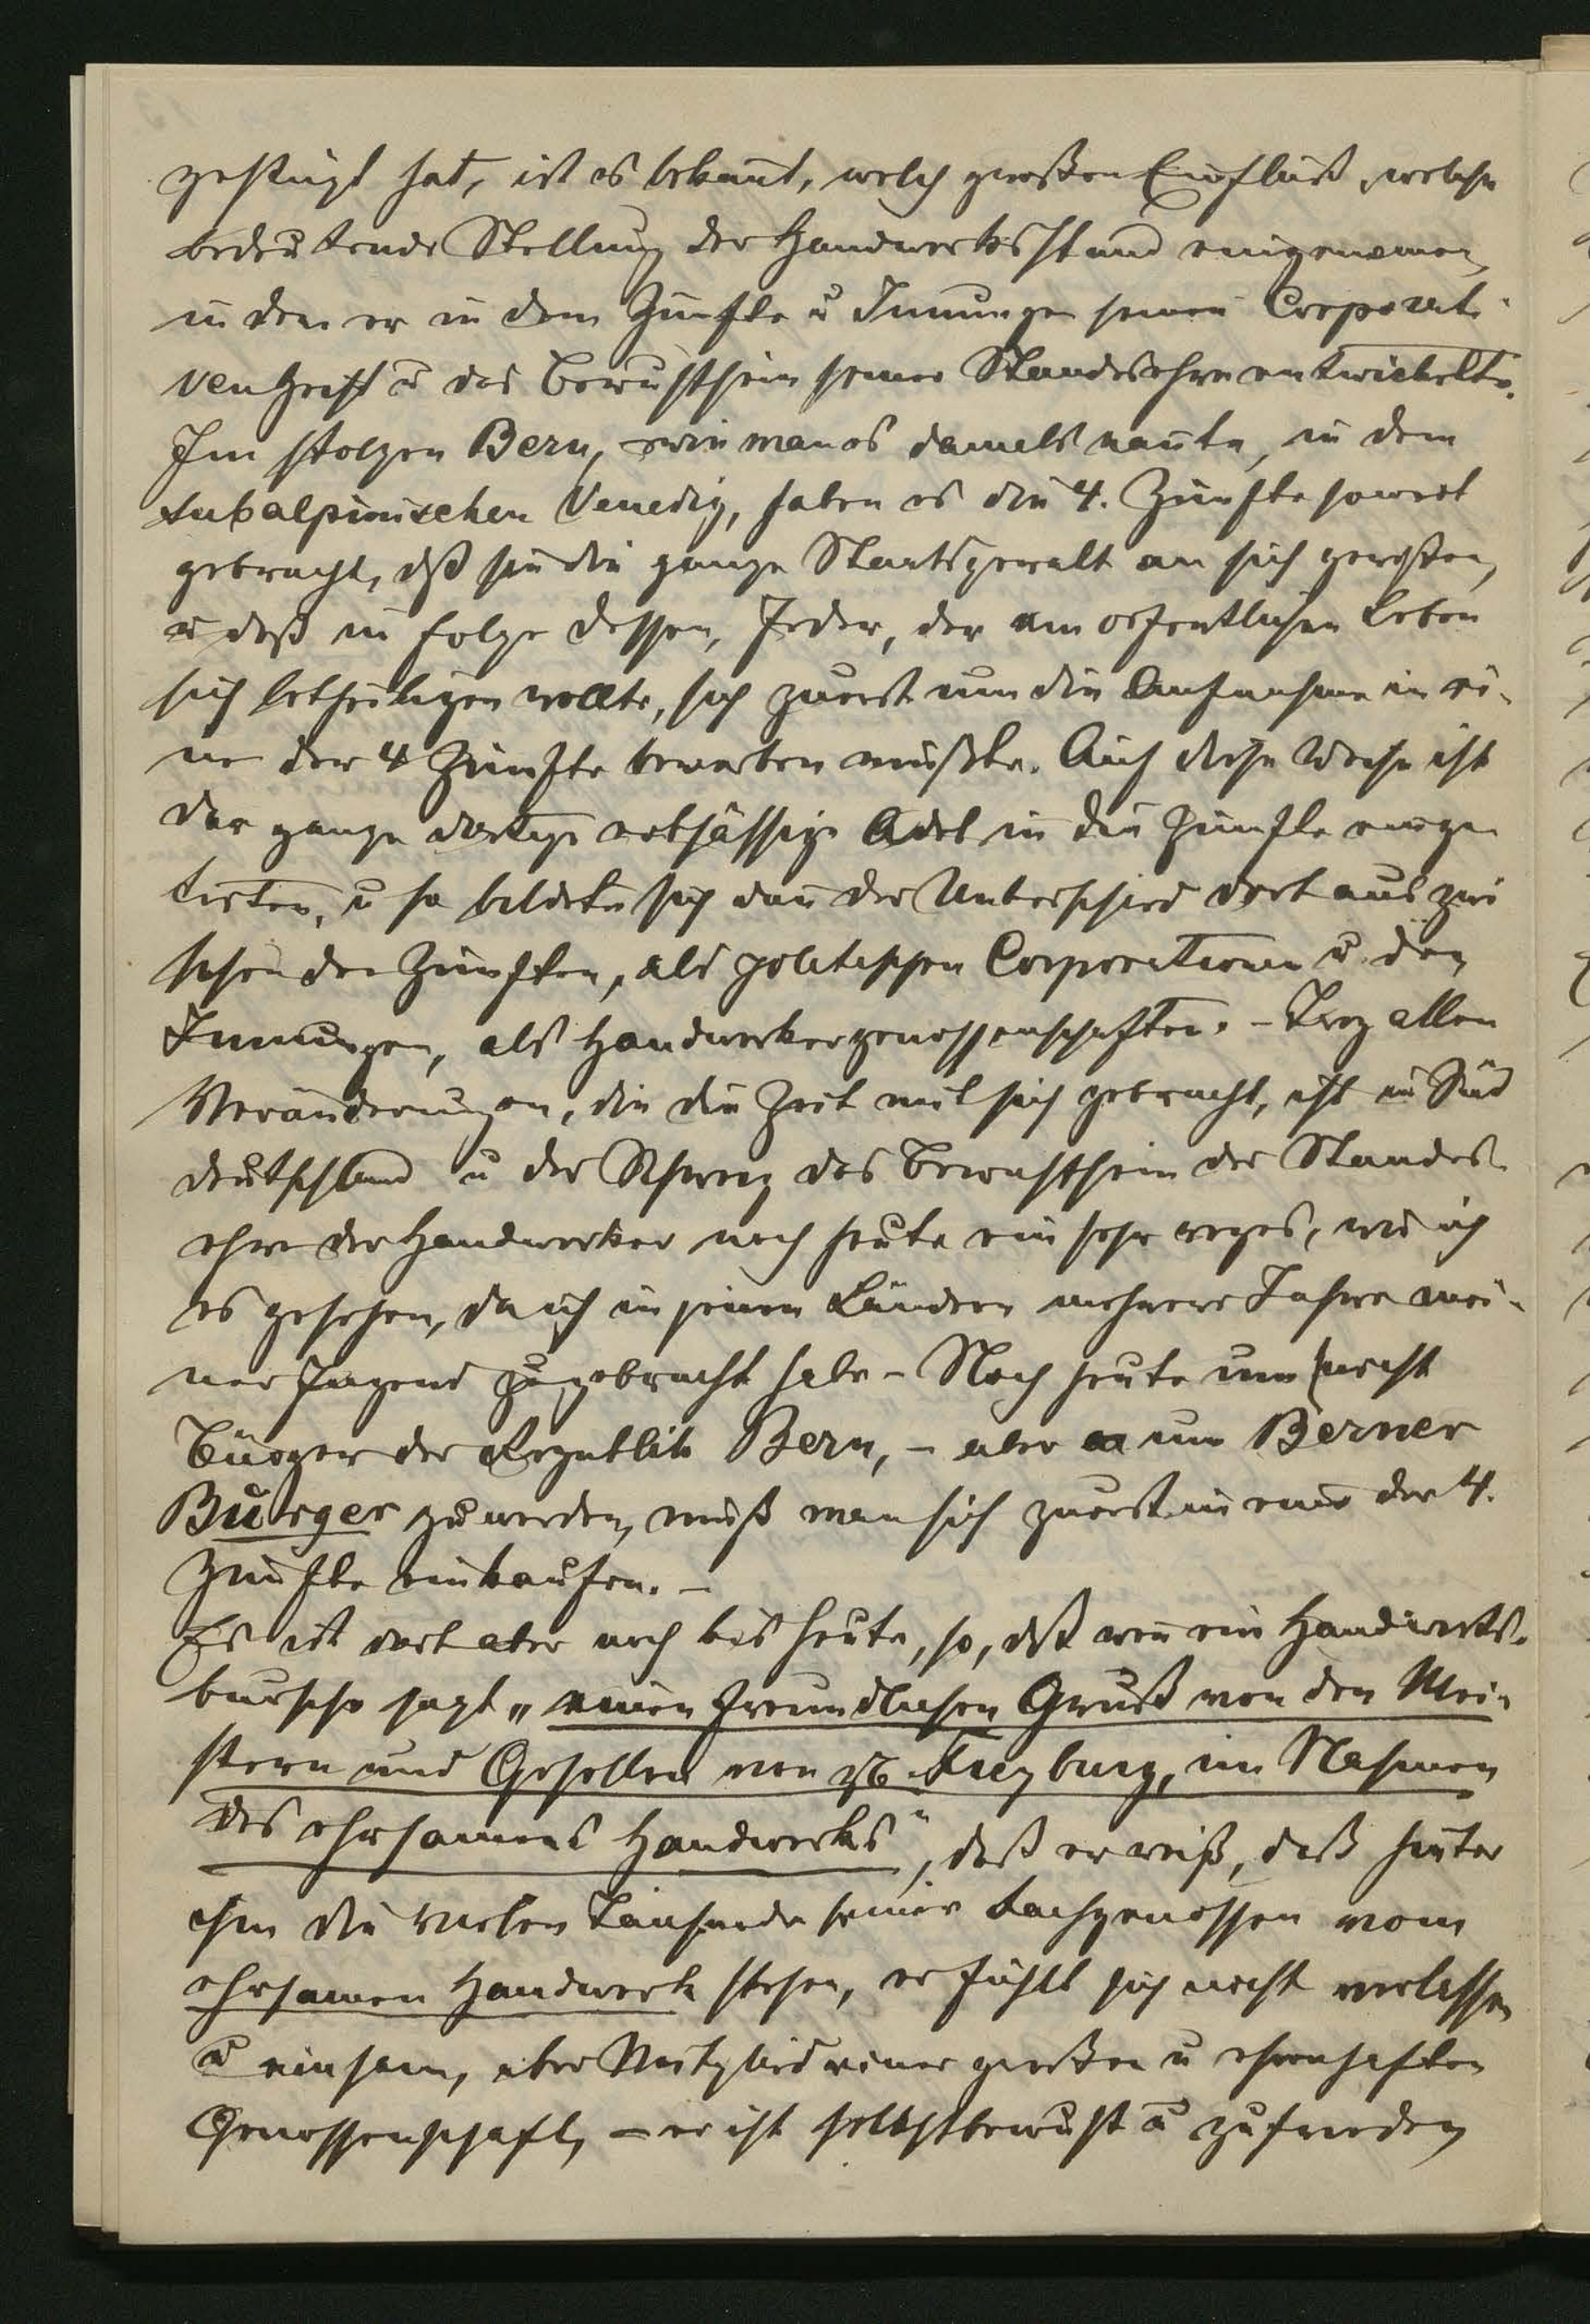 gestügt hat, ist es bekañt, welch großen Einfluß, welche
bedeutende Stellung der Handwerksstand eingenomen,
in dem er in dem Zünfte u Innungen seinen Corporati-
ven Geist u das Bewußtsein seiner Standesehre entwickelte.
Im stolzen Bern, wie man es damals nañte, in dem
subalpinischen Venedig, haben es die 4. Zünfte soweit
gebracht, dß sie die ganze Staatsgewalt an sich gerißen,
u daß in Folge dessen, Jeder, der am oefentlichen Leben
sich betheiligen wollte, sich zuerst um die Aufnahme in ei-
ne der 4 Zünfte bewerben mußte. Auf diese Weise ist
der ganze dortige erbsässige Adel in die Zünfte einge
treten, u so bildete sich dañ der Unterschied dort aus zwi
schen den Zünften, als politischen Corporationen u den
Innungen, als Handwerkergenossenschaften. - Troz allen
Veränderungen, die die Zeit mit sich gebracht, ist in Süd
deutschland u der Schweiz das Bewustsein der Standes-
ehre der Handwerker noch heute ein sehr reges, wie ich
es gesehen, da ich in jenen Ländern mehrere Jahre mei-
ner Jugend zugebracht habe - Noch heute um
Bürger der Republik Bern, - aber um Berner
Bürger zu werden, muß man sich zuerst in eine der 4.
Zünfte einkaufen. -
Es ist dort aber noch bis heute, so, dß weñ ein Handwerks-
bursche sagt „einen freundlichen Gruß von den Mei-
stern und Gesellen von Freyburg, im Nahmen
des ehrsamens Handwerks", daß er weiß, daß hinter
ihm die vielen Tausende seiner Fachgenossen vom
ehrsamen Handwerk stehen, er fühlt sich nicht verlassen
u einsam, aber Mitglied einer großen u ehrenhaften
Genossenschaft, - er ist selbstbewußt u zufrieden,